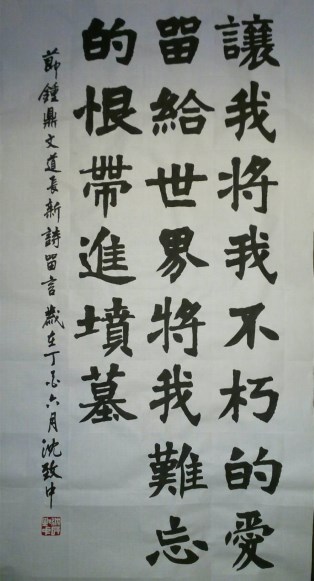 讓我將我不朽的愛
留給世界將我難忘
的恨帶進墳墓
節鍾鼎文道長新詩留言歲在丁酉六月沈致中